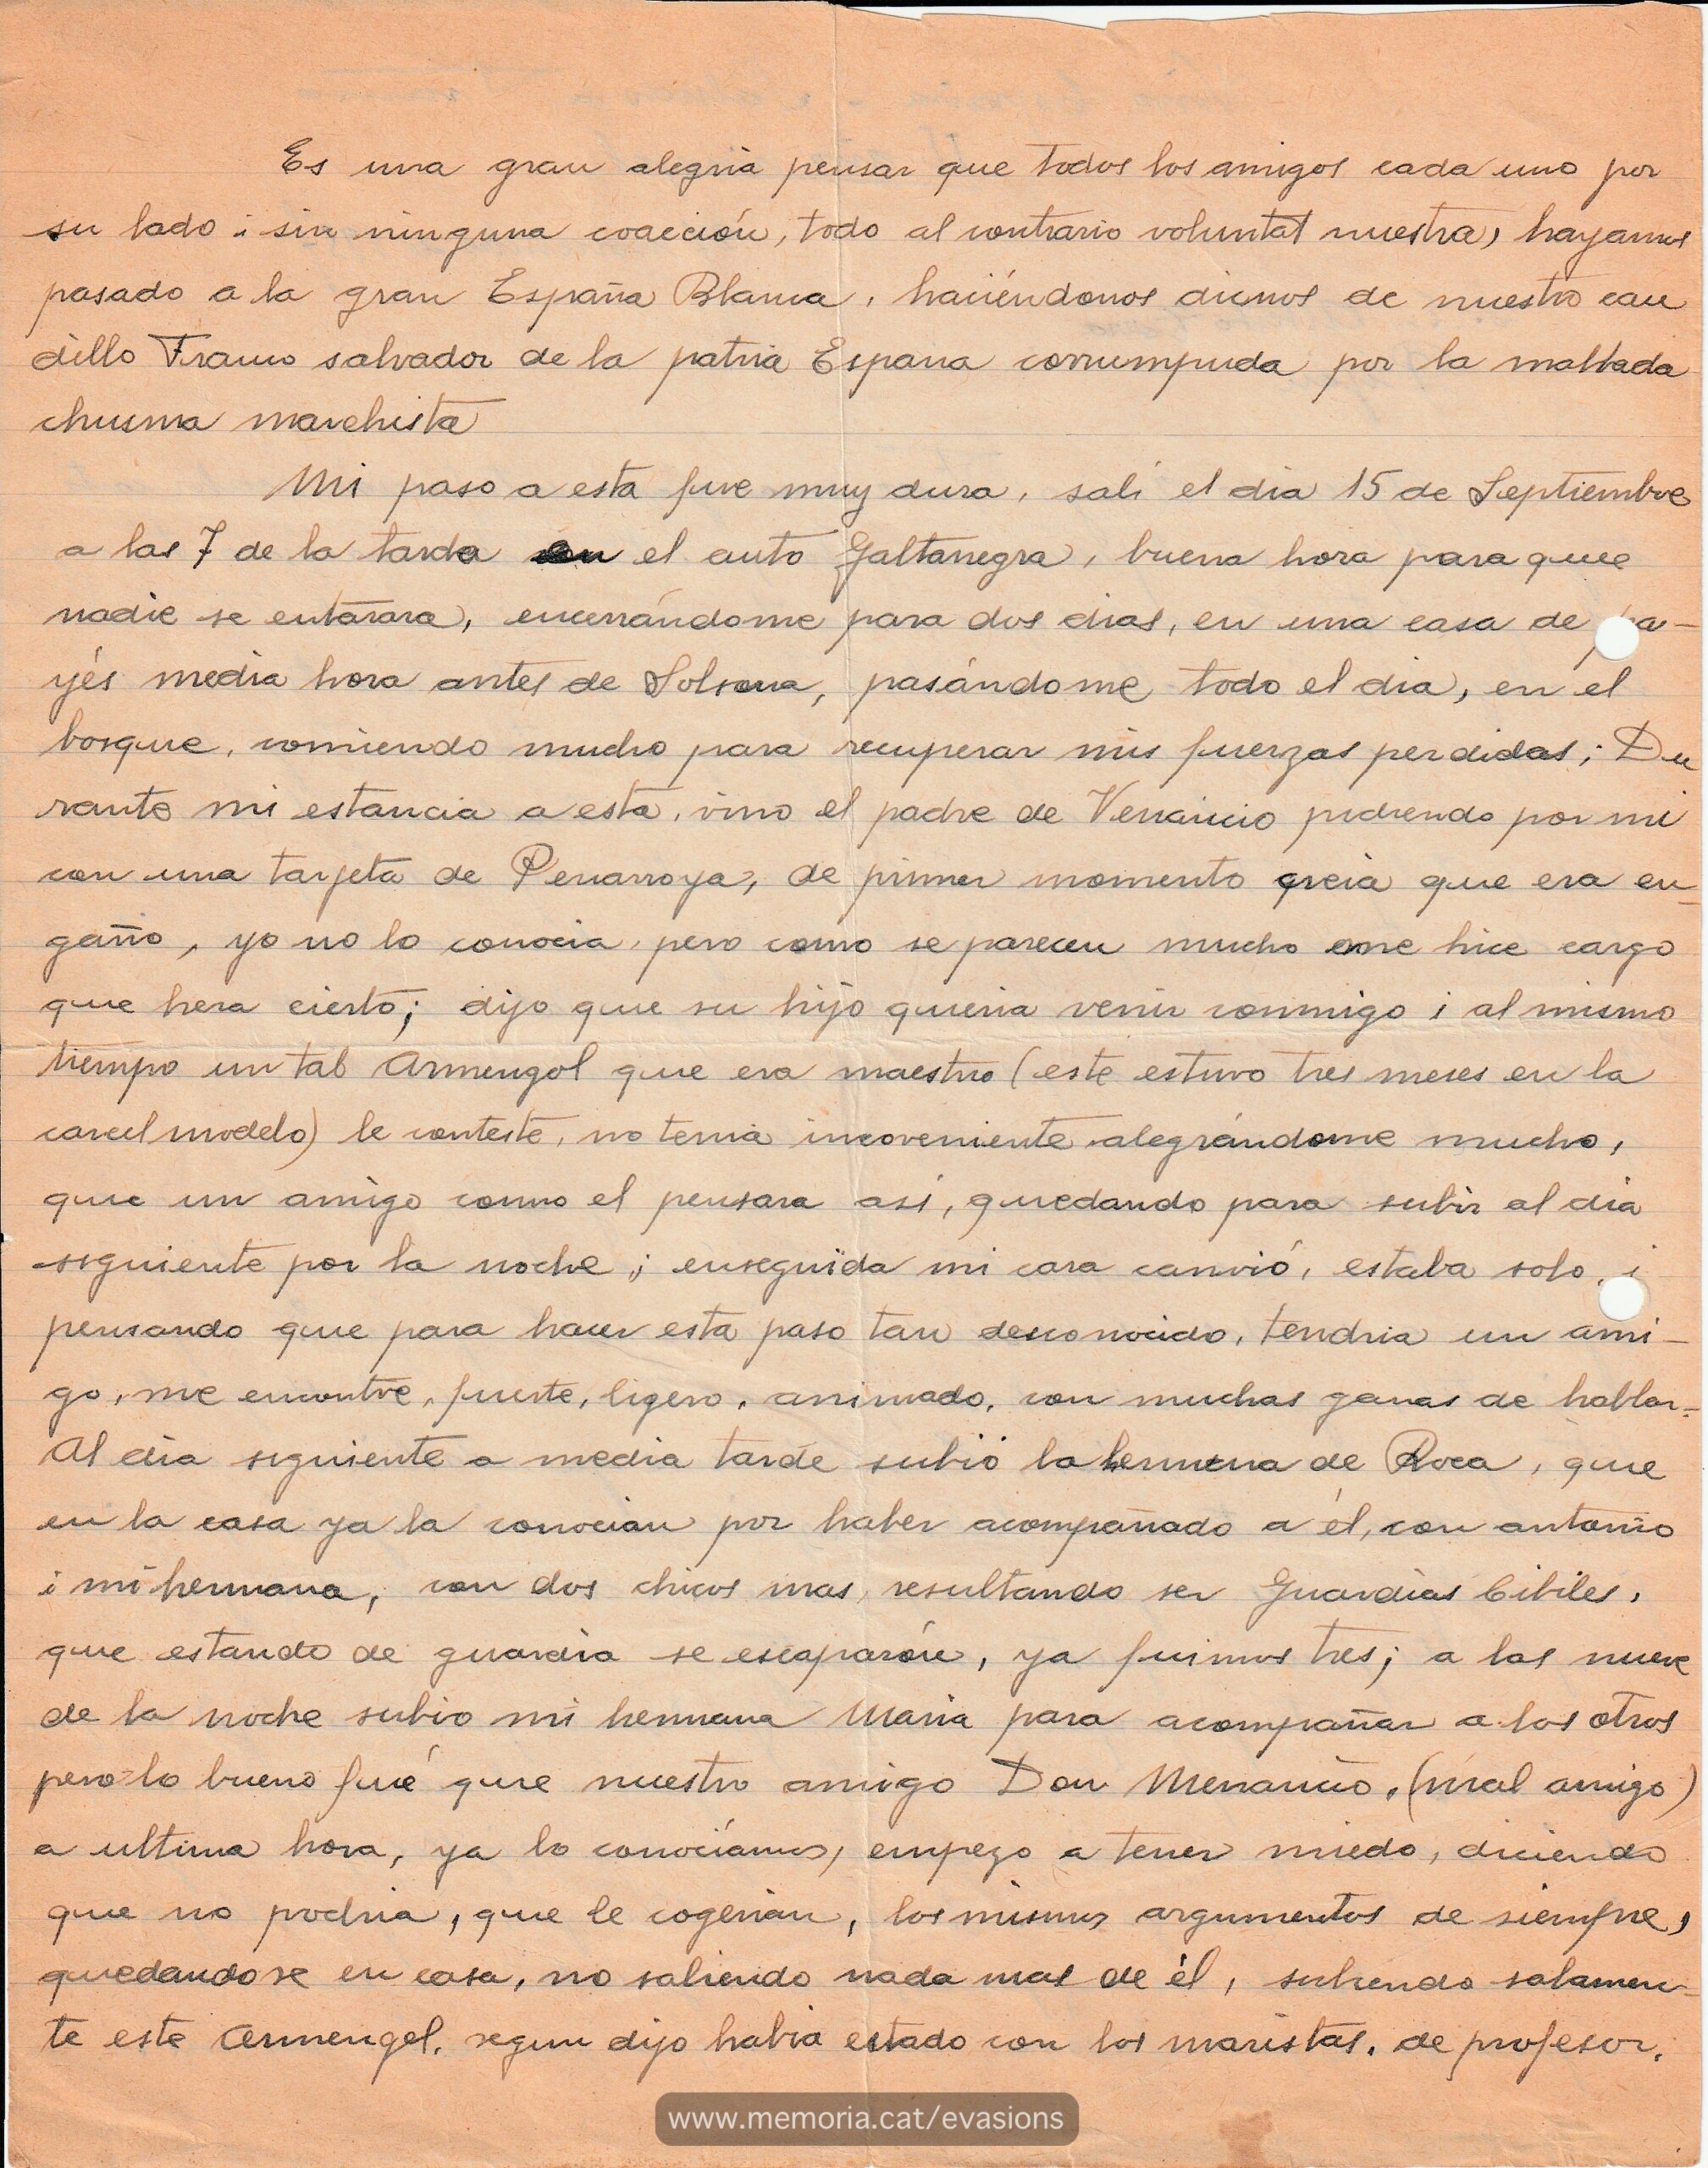 Es una gran alegria pensar que todos los amigos cada uno por
su lado i sin ninguna coacción, todo al contrario voluntat nuestra, hayamos
pasado a la gran España Blanca, haciéndonos dicnos de nuestro cau
dillo Franco salvador de la patria España corrumpuda por la malvada
chusma marchista
Mi paso a esta fue muy dura, salí el dia 15 de Septiembre
a las 7 de la tarda en el auto Galtanegra, buena hora para que
nadie se entarara, encerrándome para dos dias, en una casa de pa-
yés media hora antes de Solsona, pasándome todo el dia, en el
bosque, comiendo mucho para recuperar mis fuerzas perdidas; Du
rante mi estancia a esta, vino el padre de Venancio pidiendo por mi
con una tarjeta de Penarroya, de primer momento creia que era en-
gaño, yo no lo conocia, pero como se parecen mucho me hice cargo
que hera cierto; dijo que su hijo queria venir conmigo i al mismo
tiempo un tal Armengol que era maestro (este estuvo tres meses en la
carcel modelo) le conteste, no tenia incoveniente alegrándome mucho,
que un amigo como el pensara asi, quedando para subir al dia
siguiente por la noche; enseguïda mi cara canvió, estaba solo, i
pensando que para hacer esta paso tan desconocido, tendria un ami-
go, me encontre, fuerte, ligero, animado, con muchas ganas de hablar.
Al dia siguiente a media tarde subió la hermana de Roca, que
en la casa ya la conocian por haber acompañado a él, con antonio
i mi hermana, con dos chicos mas, resultando ser Guardias Cibiles,
que estando de guardia se escaparón, ya fuimos tres; a las nueve
de la noche subio mi hermana Maria para acompañar a los otros
pero lo bueno fué que nuestro amigo Don Menancio, (mal amigo)
a ultima hora, ya lo conocíamos, empezo a tener miedo, diciendo
que no podria, que le cogerian, los mismos argumentos de siempre,
quedandose en casa, no saliendo nada mas de él, subiendo solamen-
te este Armengol, segun dijo habia estado con los maristas, de profesor.
www.memoria.cat/evasions